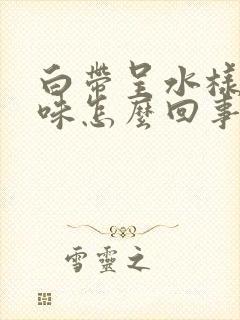 白帶呈水樣
味怎麼回事
雪靈之